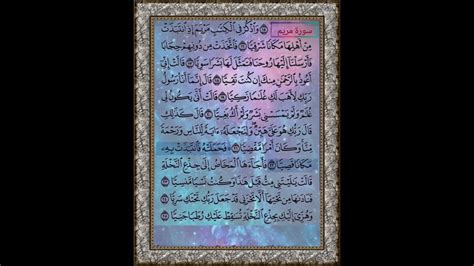 سورة مريم
وَٱذْكُرْ فِى ٱلْكِتَٰبِ مَرْيَمَ إِذِ ٱنتَبَذَتْ
مِنْ أَهْلِهَا مَكَانًا شَرْقِيًّا ١٦ فَٱتَّخَذَتْ مِن دُونِهِمْ حِجَابًا
فَأَرْسَلْنَآ إِلَيْهَا رُوحَنَا فَتَمَثَّلَ لَهَا بَشَرًا سَوِيًّا ١٧ قَالَتْ إِنِّىٓ
أَعُوذُ بِٱلرَّحْمَٰنِ مِنكَ إِن كُنتَ تَقِيًّا ١٨ قَالَ إِنَّمَآ أَنَا۠ رَسُولُ
رَبِّكِ لِأَهَبَ لَكِ غُلَٰمًا زَكِيًّا ١٩ قَالَتْ أَنَّىٰ يَكُونُ لِى
غُلَٰمٌ وَلَمْ يَمْسَسْنِى بَشَرٌ وَلَمْ أَكُ بَغِيًّا ٢٠ قَالَ كَذَٰلِكِ
قَالَ رَبُّكِ هُوَ عَلَىَّ هَيِّنٌ وَلِنَجْعَلَهُۥٓ ءَايَةً لِّلنَّاسِ وَرَحْمَةً
مِّنَّا وَكَانَ أَمْرًا مَّقْضِيًّا ٢١ فَحَمَلَتْهُ فَٱنتَبَذَتْ بِهِۦ
مَكَانًا قَصِيًّا ٢٢ فَأَجَآءَهَا ٱلْمَخَاضُ إِلَىٰ جِذْعِ ٱلنَّخْلَةِ
قَالَتْ يَٰلَيْتَنِى مِتُّ قَبْلَ هَٰذَا وَكُنتُ نَسْيًا مَّنسِيًّا ٢٣
فَنَادَىٰهَا مِن تَحْتِهَآ أَلَّا تَحْزَنِى قَدْ جَعَلَ رَبُّكِ تَحْتَكِ سَرِيًّا ٢٤
وَهُزِّىٓ إِلَيْكِ بِجِذْعِ ٱلنَّخْلَةِ تُسَٰقِطْ عَلَيْكِ رُطَبًا جَنِيًّا ٢٥